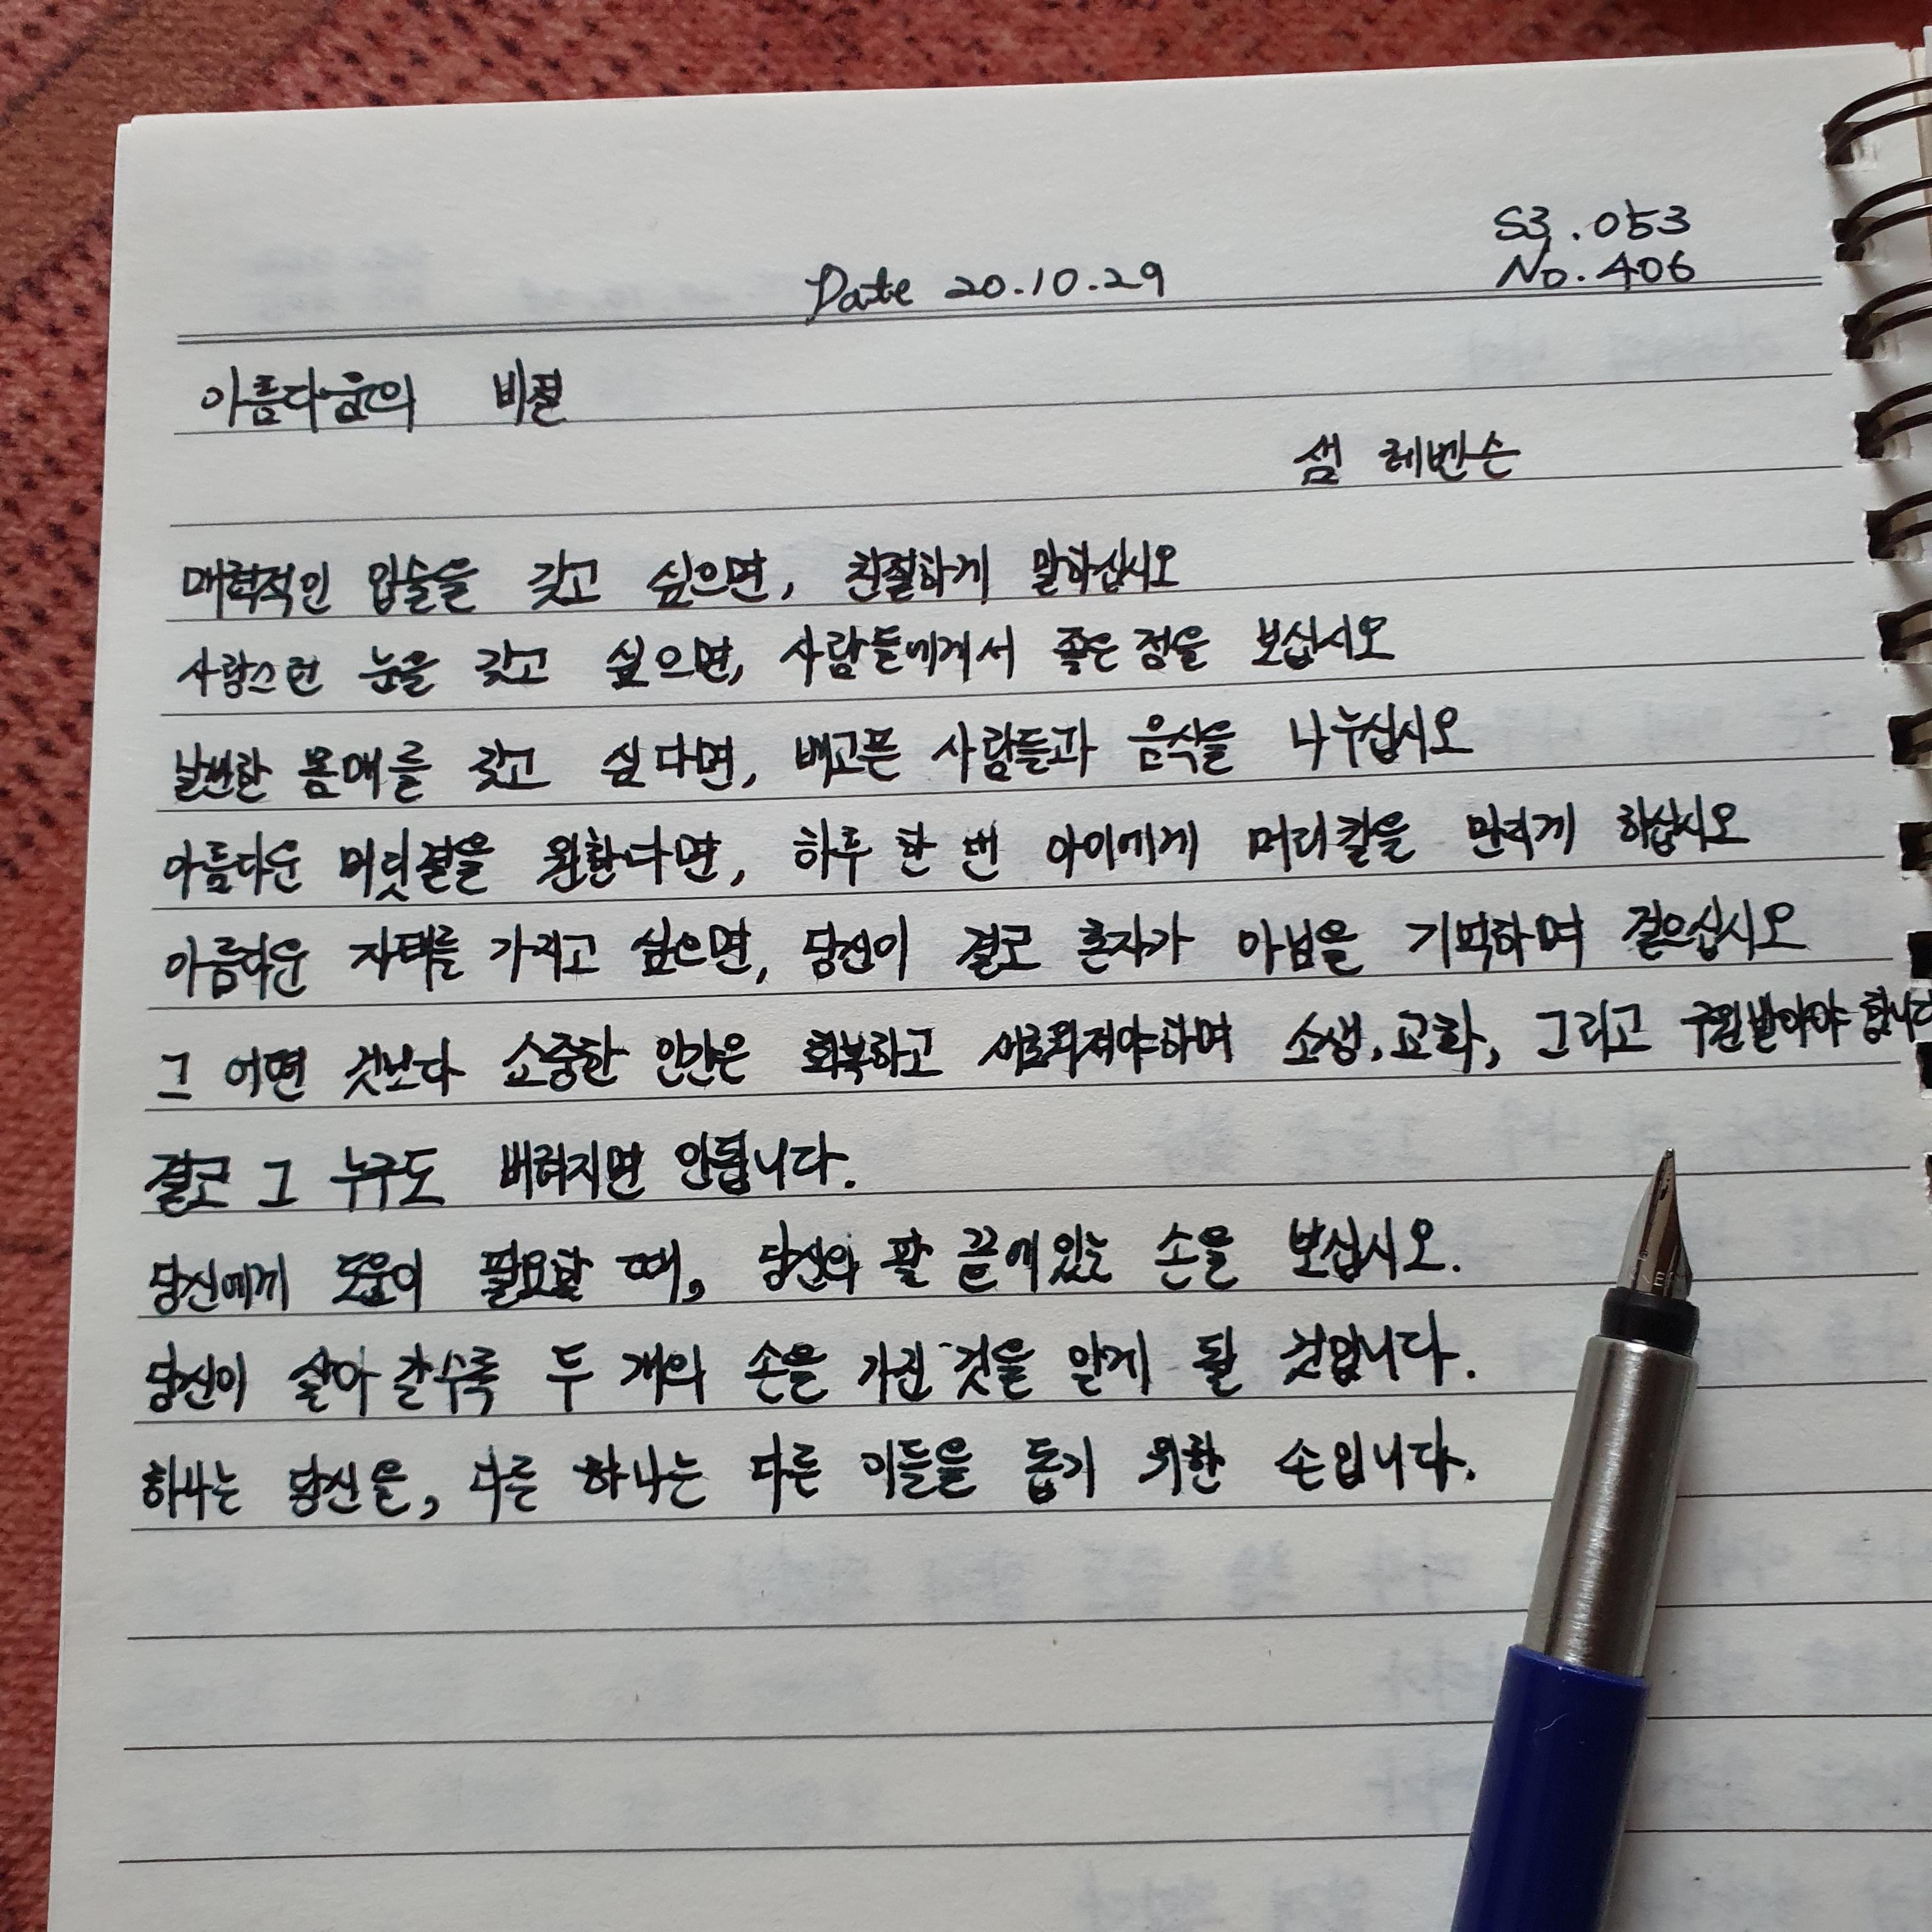 S3.053
Date 20.10.29 No.406
아름다움의 비결
샘 레벤슨
매력적인 입술을 갖고 싶으면, 친절하게 말하십시오
사랑스런 눈을 갖고 싶으면, 사람들에게서 좋은 점을 보십시오
날씬한 몸매를 갖고 싶다면, 배고픈 사람들과 음식을 나누십시오
아름다운 머릿결을 원한다면, 하루 한 번 아이에게 머리칼을 만지게 하십시오
아름다운 자태를 가지고 싶으면, 당신이 결코 혼자가 아님을 기억하며 걸으십시오
그 어떤 것보다 소중한 인간은 회복하고 새로워져야하며 소생, 교화, 그리고 구원받아야 합니다
결코 그 누구도 버려지면 안됩니다.
당신에게 도움이 필요할 때, 당신의 팔 끝에 있는 손을 보십시오.
당신이 살아 갈수록 두 개의 손을 가진 것을 알게 될 것입니다.
하나는 당신을, 다른 하나는 다른 이들을 돕기 위한 손입니다.